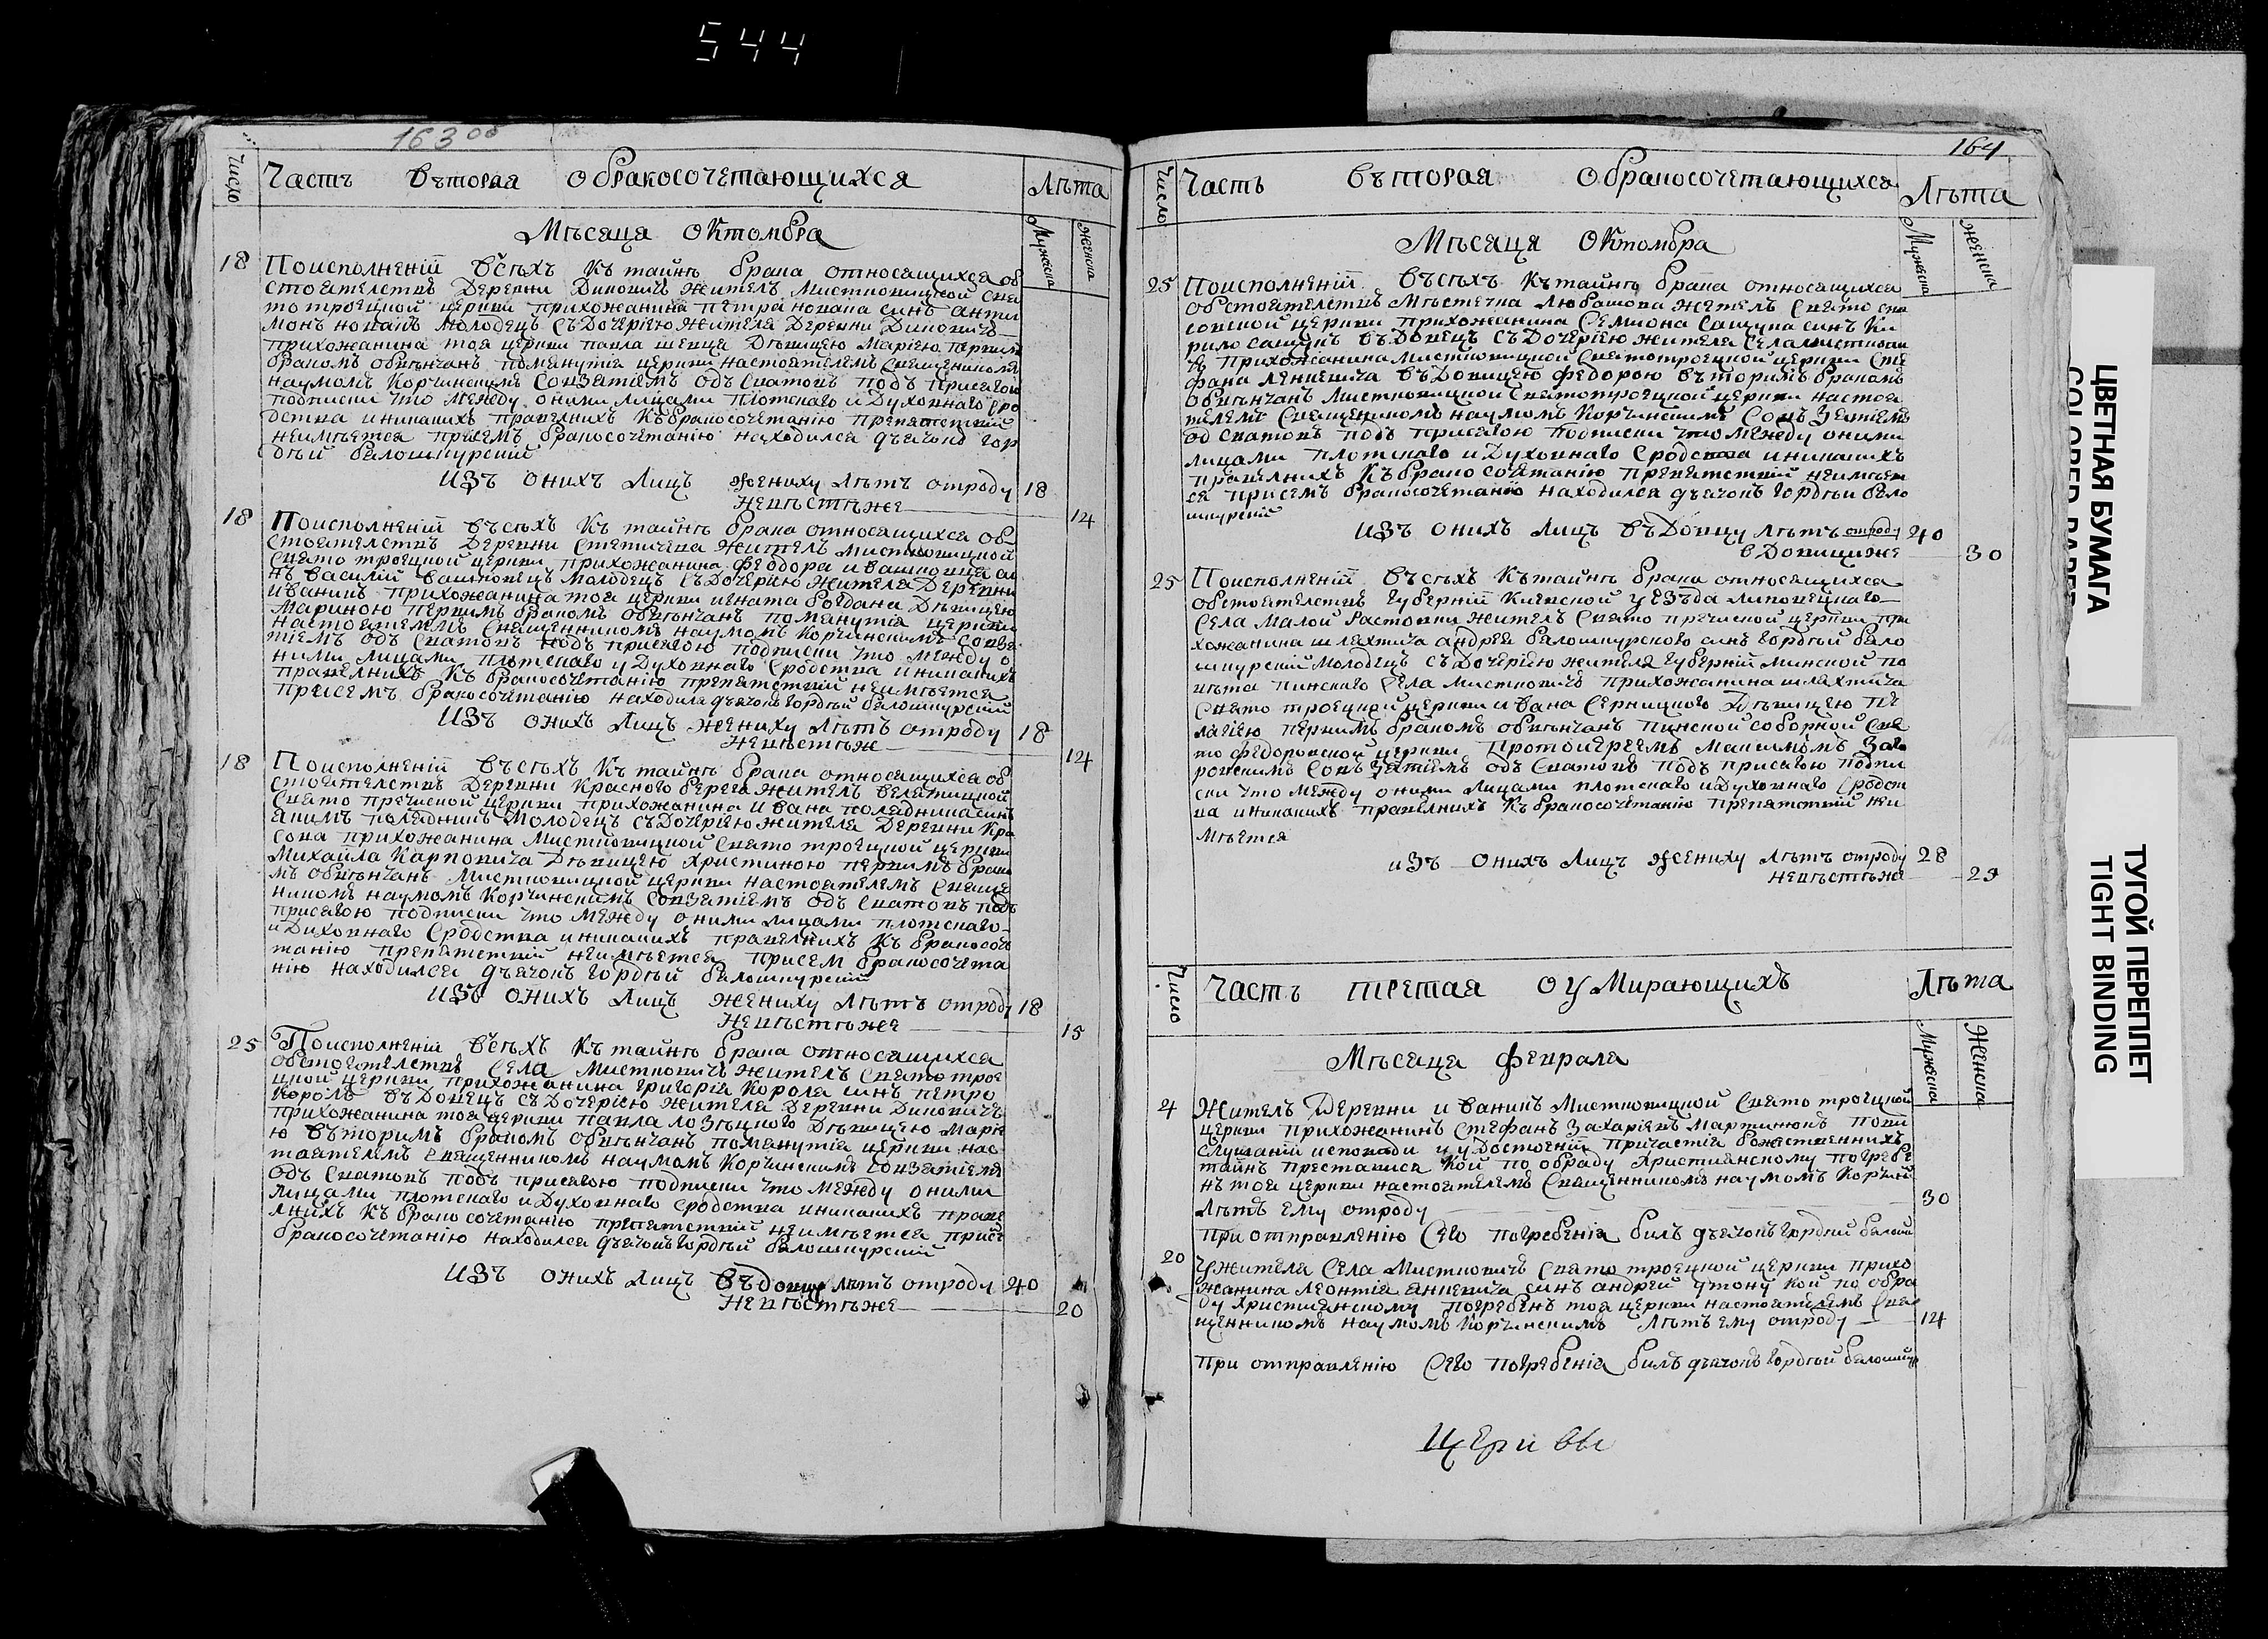 544
163 об
Число
Часть вътораѧ обракосочетающихсѧ
Лѣта
Мужеска
Женска
Мѣсѧца Октомбра
18 Поисполненій всѣхъ Къ тайнѣ брака относѧщихсѧ об
стоѧтелствъ Деревни Диковичъ жителъ Мистковицкой свѧ
то троецкой церкви прихожанина Петра новака синъ анти
монъ новакъ молодецъ съДочерїею жителѧ Деревни Диковичъ
прихожанина тоѧ церкви павла шевца Дѣвицею Марїею первим
бракомъ обвѣнчанъ помѧнутїѧ церкви настоѧтелемъ Свѧщеникомъ
наумомъ Корчинскимъ Совзѧтїемъ одъ Сватовъ подъ присѧгою
подписки что между оними лицами плотскаго и Духовнаго сро
дства иникакихъ правелнихъ Къбракосочетанїю препѧтствий
неимѣетсѧ присемъ бракосочетанїю находилсѧ дъѧчокъ гор
дѣй балошкурский
изъ онихъ Лицъ жениху лѣтъ отроду 18
невѣстѣже 14
18 Поисполненій въсѣхъ Къ тайнѣ брака относѧщихсѧ об
стоѧтелствъ Деревни Ститичева жителъ мистковицкой
Свѧто троецкой церкви прихожанина Феодора ивашковца си
нъ василїй вашковецъ молодецъ съДочерїею жителѧ Деревни
иваникъ прихожанина тоѧ церкви игната богдана Дѣвицею
Мариною первимъ бракомъ обвѣнчанъ помѧнутїѧ церкви
настоѧтелемъ Свѧщенникомъ наумомъ Корчинскимъ Совзѧ
тїемъ одъ Сватовъ подъ присѧгою подписки что между о
ними лицами плотскаго и Духовнаго Сродства иникакихъ
правелнихъ Къ бракосочетанїю препѧтствий неимѣетсѧ
присемъ бракосочетанїю находилсѧ дъѧчокъ гордѣй балошкурский
изъ онихъ Лицъ жениху лѣтъ отроду 18
невѣстѣж 14
18 Поисполненій въсѣхъ Къ тайнѣ брака относѧщихсѧ об
стоѧтелствъ Деревни Красного берега жителъ велѧтицкой
Свѧто пречиской церкви прихожанина ивана полѧдника синъ
ѧкимъ полѧдникъ молодецъ съДочерїею жителѧ Деревни Кра
сова прихожанина Мистковицкой Свѧто троецкой церкви
Михаила Карповича Дѣвицею Христиною первимъ брако
мъ обвѣнчанъ мистковицкой церкви настоѧтелемъ Свѧще
никомъ наумомъ Корчинскимъ Совзѧтїемъ одъ Сватовъ подъ
присѧгою подписки что между оними лицами плотскаго
и Диховнаго Сродства иникакихъ правелнихъ Къ бракосоч
танїю препѧтствий неимѣетсѧ присем бракосочета
нїю находилсѧ дъѧчокъ гордѣй балошкурский
изъ онихъ Лицъ жениху лѣтъ отроду 18
невѣстѣже 15
25 Поисполненїй всѣхъ Къ тайнѣ брака относѧщихсѧ
обстоѧтелствъ Села мистковичъ жителъ Свѧто трое
цкой церкви прихожанина григорїѧ Королѧ синъ петро
король въДовецъ съДочерїею жителѧ деревни Диковичъ
прихожанина тоѧ церкви павла лозѣцкого Дѣвицею Марїе
ю въторимъ бракомъ обвѣнчанъ помѧнутїѧ церкви нас
тоѧтелемъ свѧщенникомъ наумомъ Корчинскимъ совзѧтїемъ
одъ Сватовъ подъ присѧгою подписки что между оними
лицами плотскаго и Духовнаго сродства иникакихъ праве
лнихъ Къ брако сочетанїю препѧтствий неимѣетсѧ присе
бракосочетанїю находилсѧ дъѧчокъ гордѣй балошкурский
изъ онихъ лицъ въдовцу лѣтъ отроду 40
невѣстѣже 20
164
Число
Часть вътораѧ обракосочетающихсѧ
Лѣта
Мужеска
Женска
Мѣсѧца Октомбра
25 Поисполненїй въсѣхъ Къ тайнѣ брака относѧщихсѧ
обстоѧтелствъ мѣстечка любашова жителъ Свѧто спа
совской церкви прихожанина Семиона Сацука синъ Ки
рило сацукъ въДовецъ съДочерїею жителѧ Села мисткови
чъ прихожанина Мистковицкой Свѧтотроецкой церкви Сте
фана ленкевича въДовицею Федорою въторимъ бракомъ
обвѣнчанъ мистковицкой Свѧтотроецкой церкви настоѧ
телемъ Свѧщеникомъ наумомъ Корчинскимъ Совъ Зѧтїемъ
од сватовъ подъ присѧгою подписки что между оними
лицами плотскаго и Духовнаго Сродства иникакихъ
правилнихъ Къ брако сочетанїю препѧтствий неимѣет
сѧ присемъ бракосочетанїю находилсѧ дъѧчокъ гордѣи бало
шкурсий
изъ онихъ лицъ въДовцу лѣтъ отроду 40
вДовицїже 30
25 Поисполненїй въсѣхъ Къ тайнѣ брака относѧщихсѧ
обстоѧтелствъ губернїй Киевской уезъда липовецкаго
Села малой Растовки жителъ Свѧто пречиской церкви при
хожанина шлѧхтича андреѧ балошкурского синъ гордѣй бало
шкурский молодецъ съДочерїею жителѧ губернїй минской по
вѣта пинскаго Села мистковичъ прихожанина шлѧхтича
Свѧто троецкой церкви ивана Серницкого Дѣвицею пе
лагїею первимъ бракомъ обвѣнчанъ пинской соборной свѧ
то Федоровской церкви Протоиереемъ максимомъ Заго
ровскимъ Совъ зѧтїемъ одъ Сватовъ подъ присѧгою подпи
ски что между оними лицами плотскаго и Духовнаго Сродст
ва иникакихъ правелнихъ Къ бракосочетанїю препѧтствий неи
мѣетсѧ
изъ онихъ Лицъ жениху лѣтъ отроду 28
невѣстѣже 23
Число
Часть третаѧ оумирающихъ
Лѣта
Мужеска
Женска
Мѣсѧца феврала
4 Жителъ Деревни иваникъ мистковицкой Свѧто троецкой
церкви прихожанинъ Стефанъ Захарїевъ мартинюкъ пови
слушанїй исповѣди и удостоенїй причастїѧ божественнихъ
тайнъ престависѧ кой по обрѧду христиѧнскому погребе
нъ тоѧ церкви настоѧтелемъ Свѧщенникомъ наумомъ Корчин
лѣтъ ему отроду 30
при отправленїю Сего погребенїѧ билъ дъѧчокъ гордїй балош
20 у жителѧ Села мистковичъ Свѧто троецкой церкви прихо
жанина леонтїѧ ѧнкевича синъ андрей утону кой по обрѧ
ду христиѧнскому погребенъ тоѧ церкви настоѧтелемъ Свѧ
щенникомъ наумомъ Корчинскимъ лѣтъ ему отроду 14
при отправленїю Сего погребенїѧ билъ дъѧчокъ гордѣй балошкур
церкви
ЦВЕТНАЯ БУМАГА
COLORED PAPER
ТУГОЙ ПЕРЕПЛЕТ
TIGHT BINDING